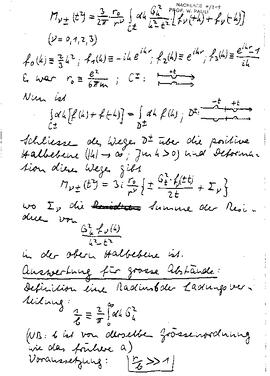 NACHLASS
PROF. W. PAULI
M_ν±(t²) = 3/2π r₀/r^ν ∫_C± dk G_k²/(k²-t²) [f_ν(+k) + f_ν(-k)]
(ν = 0,1,2,3)
f₀(k) ≡ 2/3 k², f₁(k) ≡ -ik e^{ikr}, f₂(k) ≡ e^{ikr}, f₃(k) ≡ (e^{ikr}-1)/ik
Es war r₀ ≡ e²/6πm ; C±:
+t
-t
Nun ist
∫_C± dk [f(k) + f(-k)] = ∫_D± dk f(k), D±:
-t +t
Schliessen des Weges D± über die positive
Halbebene (|k| → ∞, Jm k > 0) und Deforma-
tion dieses Weges gibt
M_ν±(t²) = 3i r₀/r^ν { ± G_t² f_ν(±t)/2t + Σ_ν }
wo Σ_ν die Summe der Resi-
duen von
G_k² f_ν(k)/(k²-t²)
in der obern Halbebene ist.
Auswertung für grosse Abstände:
Definition eines Radius b der Ladungsver-
teilung:
≡ 2/π ∫₀^∞ dk G_k²
(NB: b ist von derselben Grössenordnung
wie das frühere a)
Voraussetzung: r/b >> 1